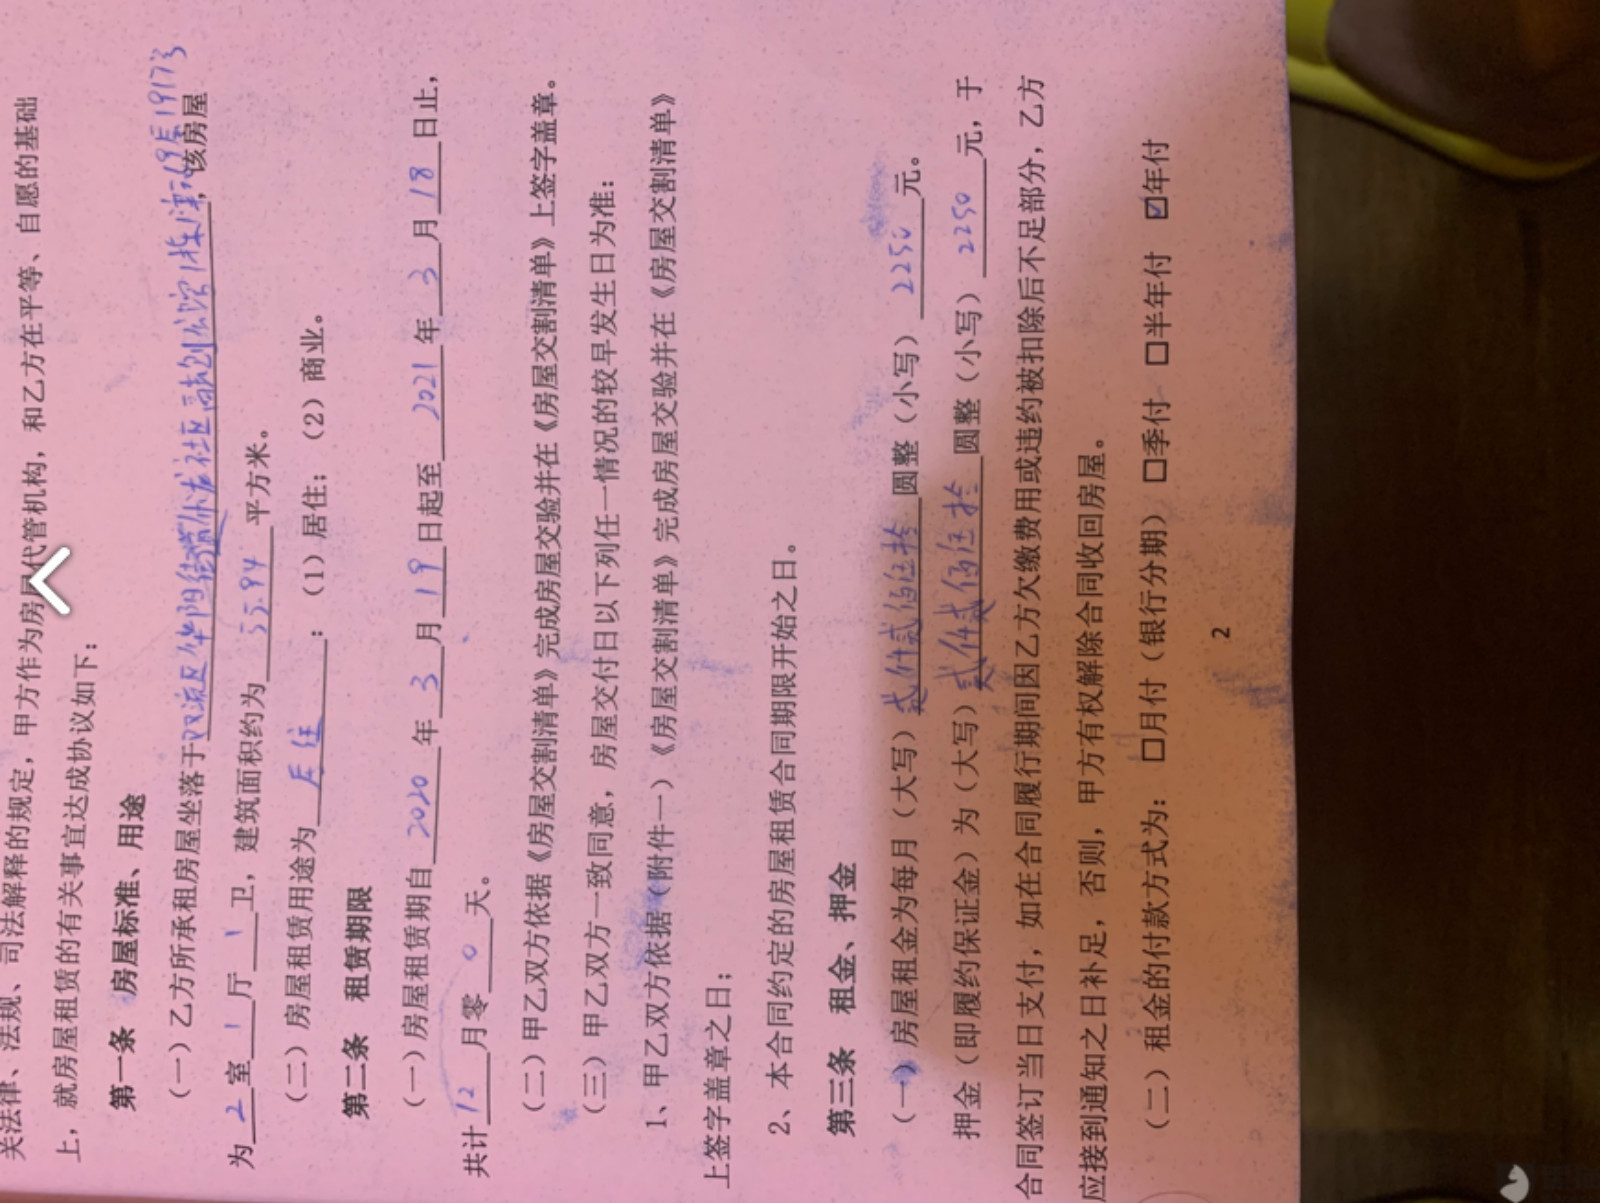 关法律、法规、司法解释的规定，甲方作为房屋代管机构，和乙方在平等、自愿的基础
上，就房屋租赁的有关事宜达成协议如下：
第一条 房屋标准、用途
（一）乙方所承租房屋坐落于双流区华阳街道 社区 1栋 该房屋
为2室1厅1卫，建筑面积约为55.94平方米。
（二）房屋租赁用途为居住：（1）居住；（2）商业。
第二条 租赁期限
（一）房屋租赁期自2020年3月19日起至2021年3月18日止，
共计12月零0天。
（二）甲乙双方依据《房屋交割清单》完成房屋交验并在《房屋交割清单》上签字盖章。
（三）甲乙双方一致同意，房屋交付日以下列任一情况的较早发生日为准：
1、甲乙双方依据（附件一）《房屋交割清单》完成房屋交验并在《房屋交割清单》
上签字盖章之日；
2、本合同约定的房屋租赁合同期限开始之日。
第三条 租金、押金
（一）房屋租金为每月（大写）贰仟贰佰伍拾圆整（小写）2250元。
押金（即履约保证金）为（大写）贰仟贰佰伍拾圆整（小写）2250元，于
合同签订当日支付，如在合同履行期间因乙方欠缴费用或违约被扣除后不足部分，乙方
应接到通知之日补足，否则，甲方有权解除合同收回房屋。
（二）租金的付款方式为：□月付（银行分期）□季付 □半年付 ☑年付
2